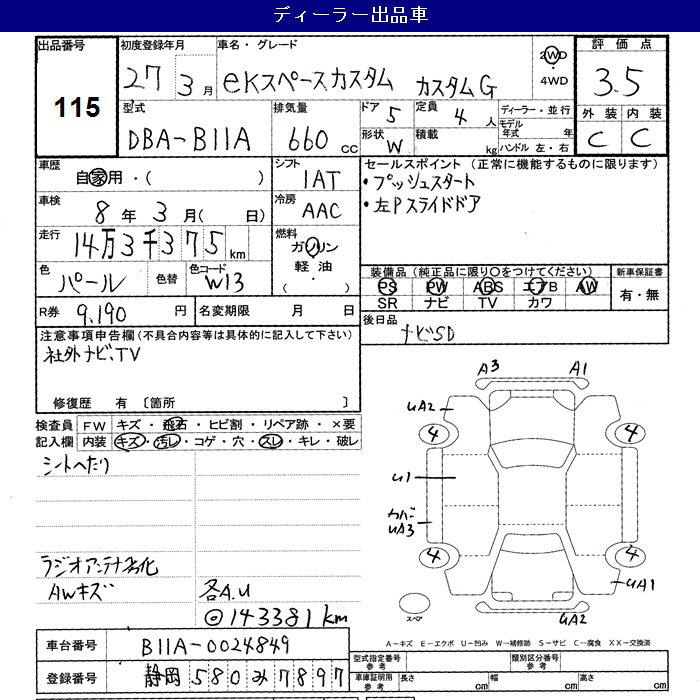 ディーラー出品車
出品番号
115
初度登録年月
27 3月
車名・グレード
eKスペースカスタム カスタムG
2WD
・
4WD
評価点
3.5
外装 内装
C C
型式
DBA-B11A
排気量
660 cc
ドア 5
形状 W
定員 4 人
積載 kg
ディーラー・並行
モデル年式 年
ハンドル 左・右
車歴
自家用・( )
シフト
1AT
車検
8年 3月( 日)
冷房
AAC
走行
14万3千375km
燃料
ガソリン
軽油
( ・ )
色 パール
色替
色コード W13
R券 9,190 円
名変期限 月 日
セールスポイント(正常に機能するものに限ります)
・プッシュスタート
・左Pスライドドア
装備品(純正品に限り〇をつけてください)
PS PW ABS エアB AW
SR ナビ TV カワ
新車保証書
有・無
後日品
ナビSD
注意事項申告欄(不具合内容等は具体的に記入して下さい)
社外ナビ、TV
修復歴 有〔箇所 〕
検査員記入欄
FW キズ・飛石・ヒビ割・リペア跡・×要
内装 キズ・汚レ・コゲ・穴・スレ・キレ・破レ
シートへたり
ラジオアンテナ劣化
AWキズ 各A.U
◎143381km
A3 A1
UA2
4 4
U1
カバー
UA3
4 4
UA1
スペア
UA2
A-キズ E-エクボ U-凹み W-補修跡 S-サビ C-腐食 XX-交換済
車台番号 B11A-0024849
登録番号 静岡 580 み 7897
型式指定番号
参考
類別区分番号
参考
車庫証明用
参考
長さ cm 幅 cm 高さ cm